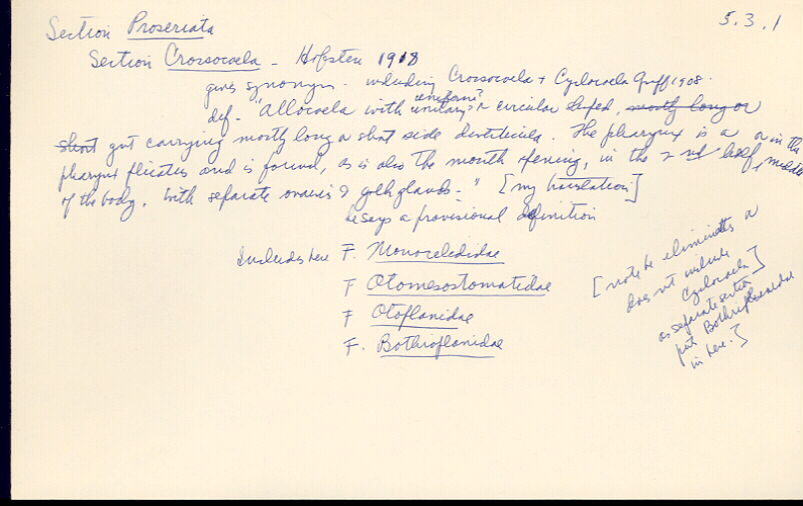 5.3.1
Section Proseriata
Section Crossocoela - Hofsten 1918
gives synonyms - including Crossocoela + Cyclocoela Graff 1908.
uniform?
def - "Allocoela with unitary? or circular shaped, mostly long or
short gut carrying mostly long or short side diverticula. The pharynx is a or in the
pharynx plicatus and is found, as is also the mouth opening, in the 2nd half, middle
of the body. With separate ovaries & yolk glands." [my translation]
he says a provisional definition
Includes here F. Monocelididae
F Otomesostomatidae
F Otoplanidae
F. Bothrioplanidae
[note he eliminates or
does not include
Cyclocoela
as separate section
puts Bothrioplanidae
in here.]